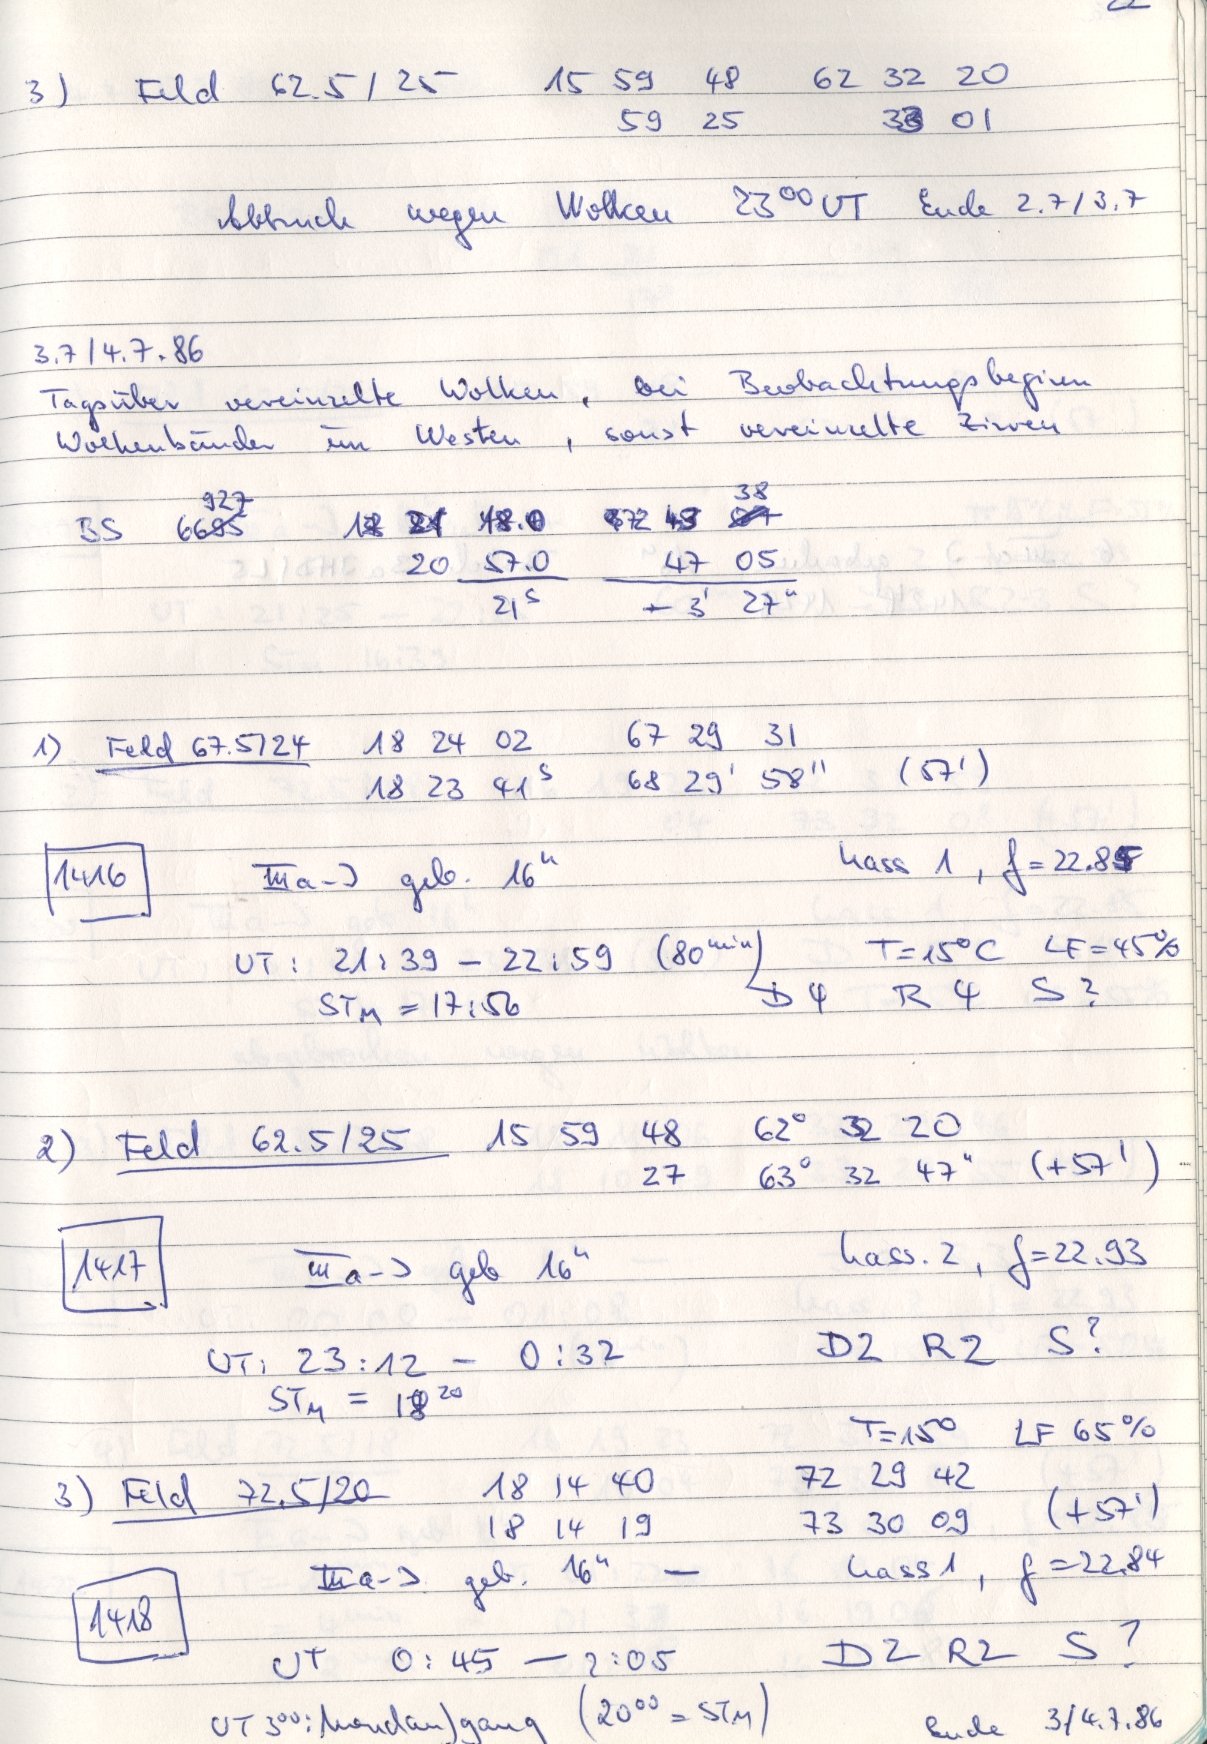 22
3) Feld 62.5/25 15 59 48 62 32 20
59 25 33 01
Abbruch wegen Wolken 23⁰⁰ UT Ende 2.7/3.7
3.7/4.7.86
Tagsüber vereinzelte Wolken, bei Beobachtungsbeginn
Wolkenbänder im Westen, sonst vereinzelte Zirren
927 38
BS 6695 18 21 18.0 72 43
20 57.0 47 05
21ˢ - 3' 27"
1) Feld 67.5/24 18 24 02 67 29 31
18 23 41ˢ 68 29' 58" (57')
1416 IIIa-J geb. 16ʰ Kass 1, f=22.85
UT: 21:39 - 22:59 (80ᵐⁱⁿ) T=15°C LF=45%
STM = 17:56 D4 R4 S?
2) Feld 62.5/25 15 59 48 62° 32 20
27 63° 32 47" (+57')
1417 IIIa-J geb 16ʰ Kass. 2, f=22.93
UT: 23:12 - 0:32 D2 R2 S?
STM = 19²⁰
T=15° LF 65%
3) Feld 72.5/20 18 14 40 72 29 42
18 14 19 73 30 09 (+57')
IIIa-J. geb. 16ʰ - Kass 1, f=22.84
1418
UT 0:45 - 2:05 D2 R2 S?
UT 3⁰⁰: Mondaufgang (20⁰⁰ = STM) Ende 3/4.7.86